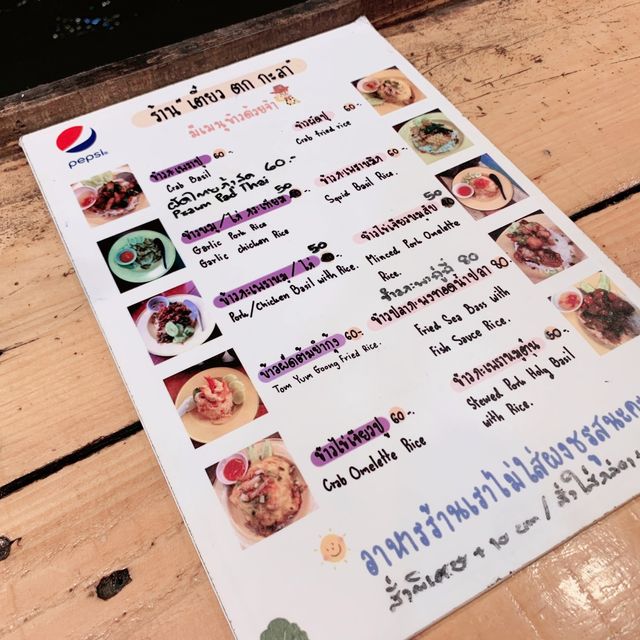 ร้าน "เตี๋ยว ตก กะลา"
มีเมนูข้าวด้วยจ้า
pepsi
ข้าวกะเพราปู 60.-
Crab Basil
ผัดไทยกุ้งสด 60.-
Prawn Pad Thai
ข้าวหมู/ไก่ กระเทียม 50
Garlic Pork Rice
Garlic chicken Rice
ข้าวกะเพราหมู/ไก่ 50
Pork/Chicken Basil with Rice.
ข้าวผัดต้มยำกุ้ง 60.-
Tom Yum Goong Fried Rice.
ข้าวไข่เจียวปู 60.-
Crab Omelette Rice
ข้าวผัดปู 60.-
Crab fried rice
ข้าวกะเพราหมึก 60.-
Squid Basil Rice.
ข้าวไข่เจียวหมูสับ 50
Minced Pork Omelette
Rice.
80
80
Fried Sea Bass with
Fish Sauce Rice.
ข้าวกะเพราหมูตุ๋น 60.-
Stewed Pork Holy Basil
with Rice.
อาหารร้านเราไม่ใส่ผงชูรสนะคะ
สั่งพิเศษ + 10